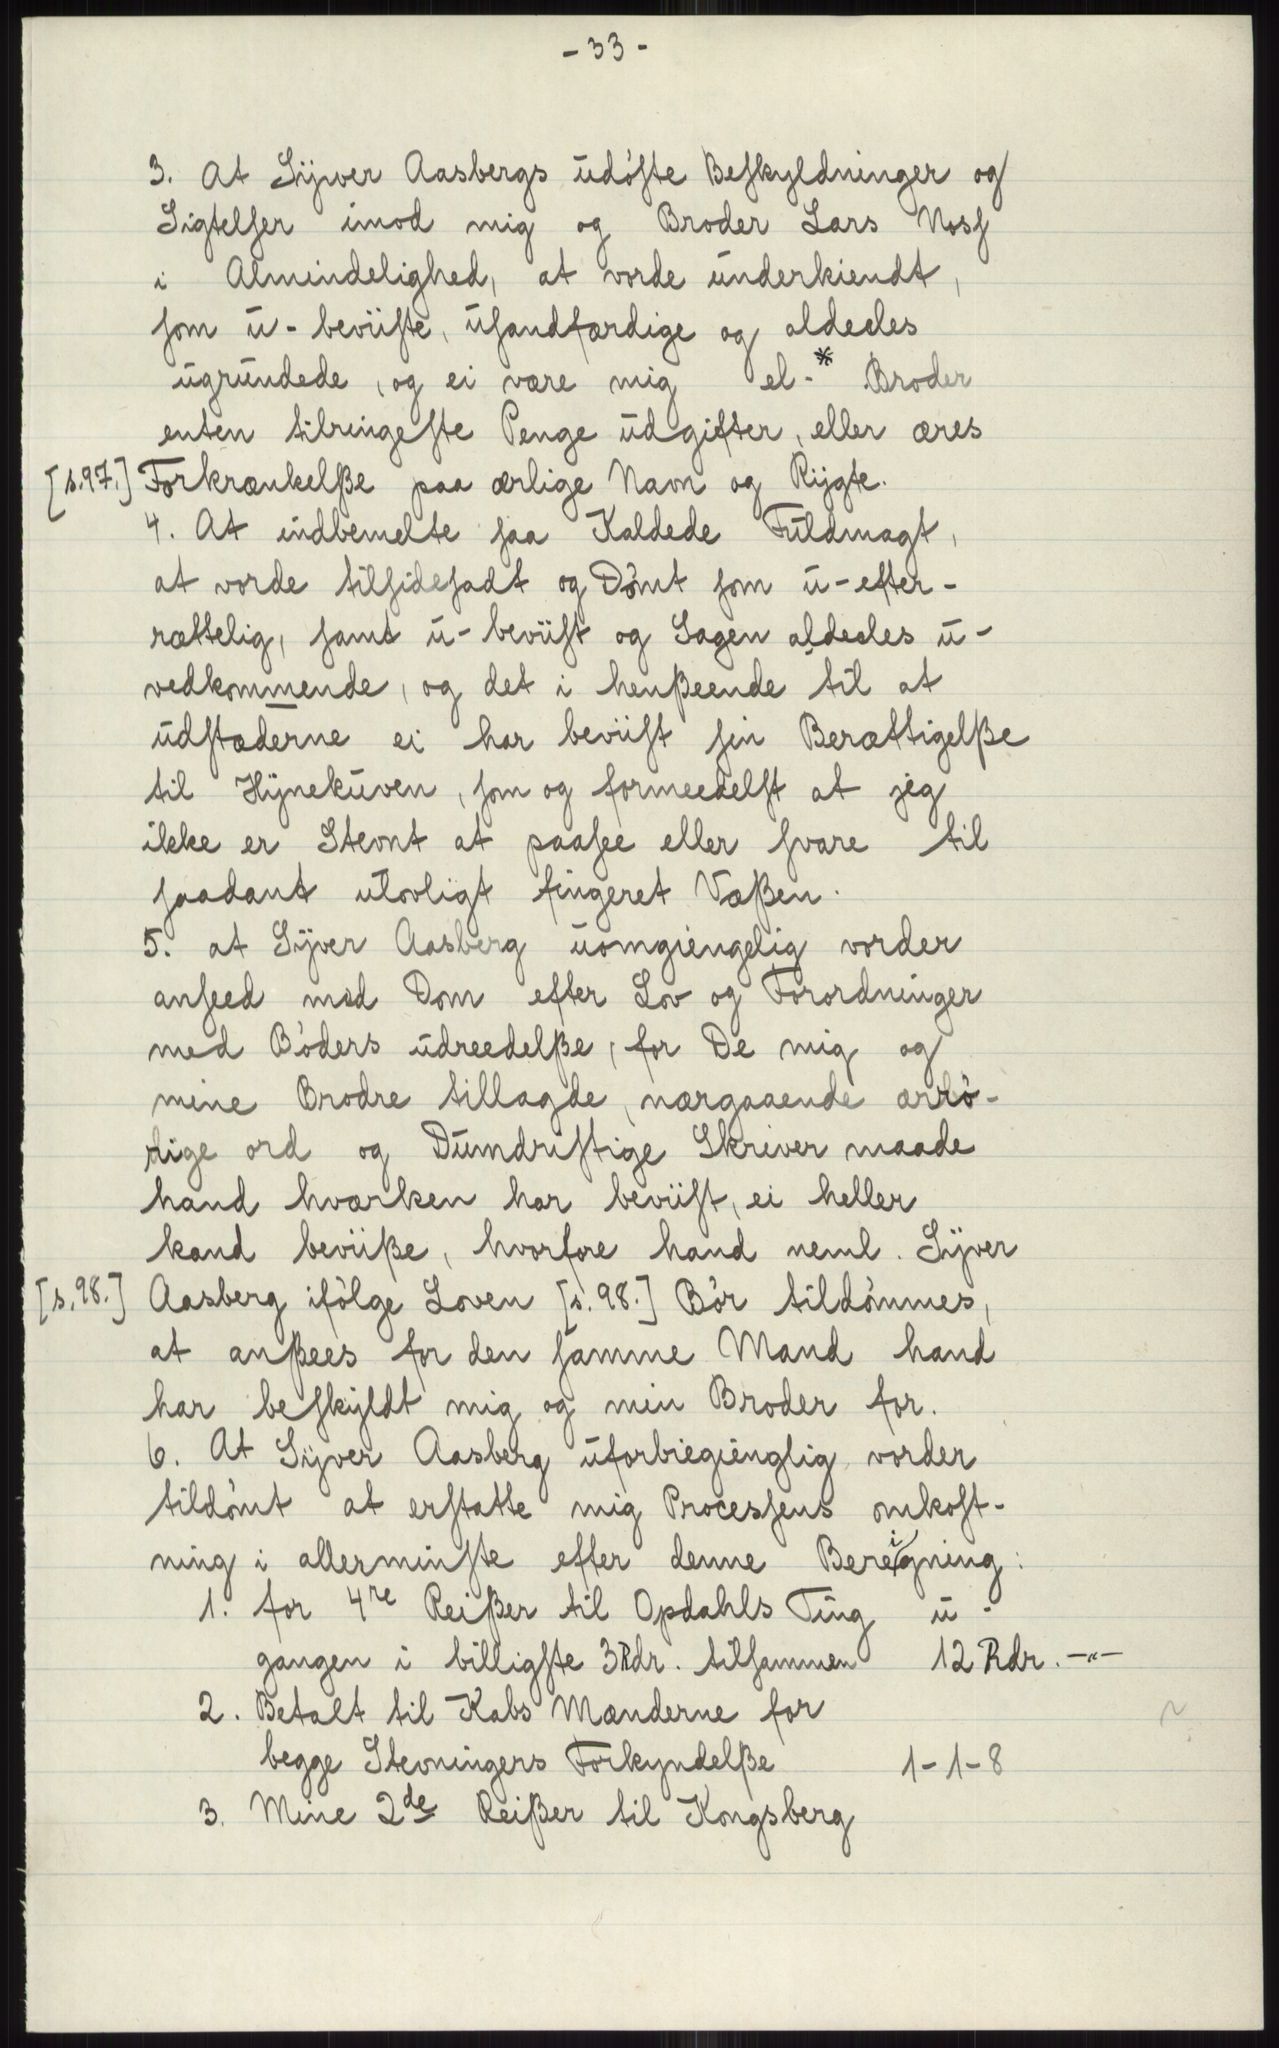 - 33 -
3. At Sÿver Aasbergs udöfte Beskyldninger og
Sigtelser imod mig og Broder Lars Noss
i Almindelighed, at vorde underkiendt,
som u-beviiste, usandfærdige og aldeeles
ugrundede, og ei være mig el-* Broder
enten tilringeste Penge udgifter, eller æres
[s.97.] Forkrænkelße paa ærlige Navn og Rÿgte.
4. At indbemelte saa Kaldede Fuldmagt,
at vorde tilsidesadt og Dömt som u-efter-
rættelig, samt u-beviist og Sagen aldeeles u-
vedkommende, og det i henßeende til at
udstæderne ei har beviist sin Berættigelße
til Hÿnekuven, som og formeedelst at jeg
ikke er Stevnt at paasee eller svare til
saadant ulovligt fingeret Væßen.
5. at Sÿver Aasberg uomgiengelig vorder
anseed med Dom efter Lov og Forordninger
med Böders udreedelße, for De mig og
mine Brodre tillagde, nærgaaende ærrö-
rige ord og Dumdristige Skriver maade
hand hværken har beviist, ei heller
kand beviiße, hvorfore hand neml. Sÿver
[s.98.] Aasberg ifölge Loven [s.98.] Bör tildömmes,
at anßees for den samme Mand hand
har beskyldt mig og min Broder for.
6. At Sÿver Aasberg uforbiegienglig vorder
tildömt at erstatte mig Processens omkost-
ning i allerminste efter denne Bereigning:
1. for 4re Reißer til Opdahls Ting u-
gangen i billigste 3Rdr. tilsammen 12 Rdr. -"-
2. Betalt til Kabs Mænderne for
begge Stevningers Forkyndelße 1-1-8
3. Mine 2de Reißer til Kongsberg